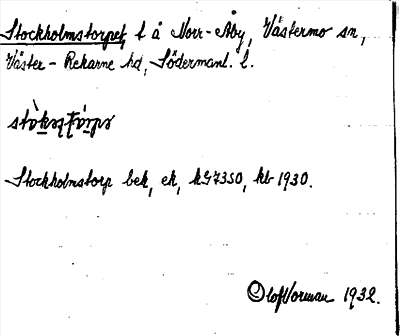 Stockholmstorpet, t å Norr-Åby, Västermo sn,
Väster-Rekarne hd, Södermanl. l.
Stockholmstorp bek, ek, kG7350, kb 1930.
Olof Norman 1932.